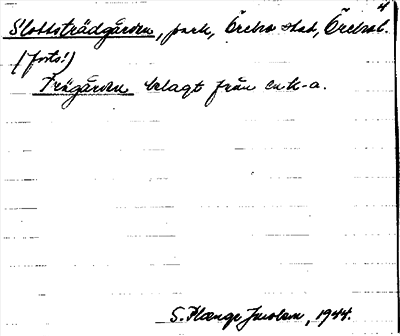 4
Slottsträdgården, park, Örebro stad, Örebro l.
(forts!)
Trägården belagt från enk-a.
S. Plange Jacobson, 1944.